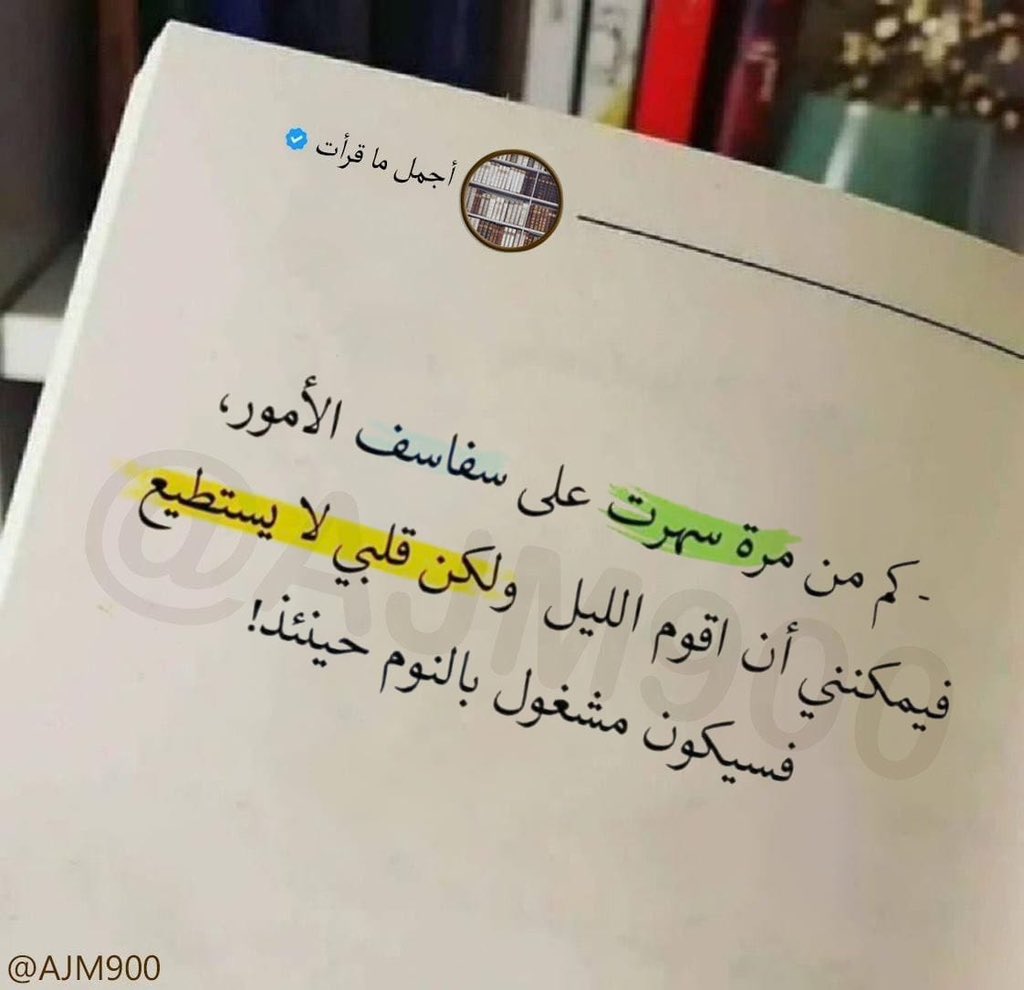 أجمل ما قرأت
- كم من مرة سهرت على سفاسف الأمور،
فيمكنني أن اقوم الليل ولكن قلبي لا يستطيع
فسيكون مشغول بالنوم حينئذ!
@AJM900
@AJM900